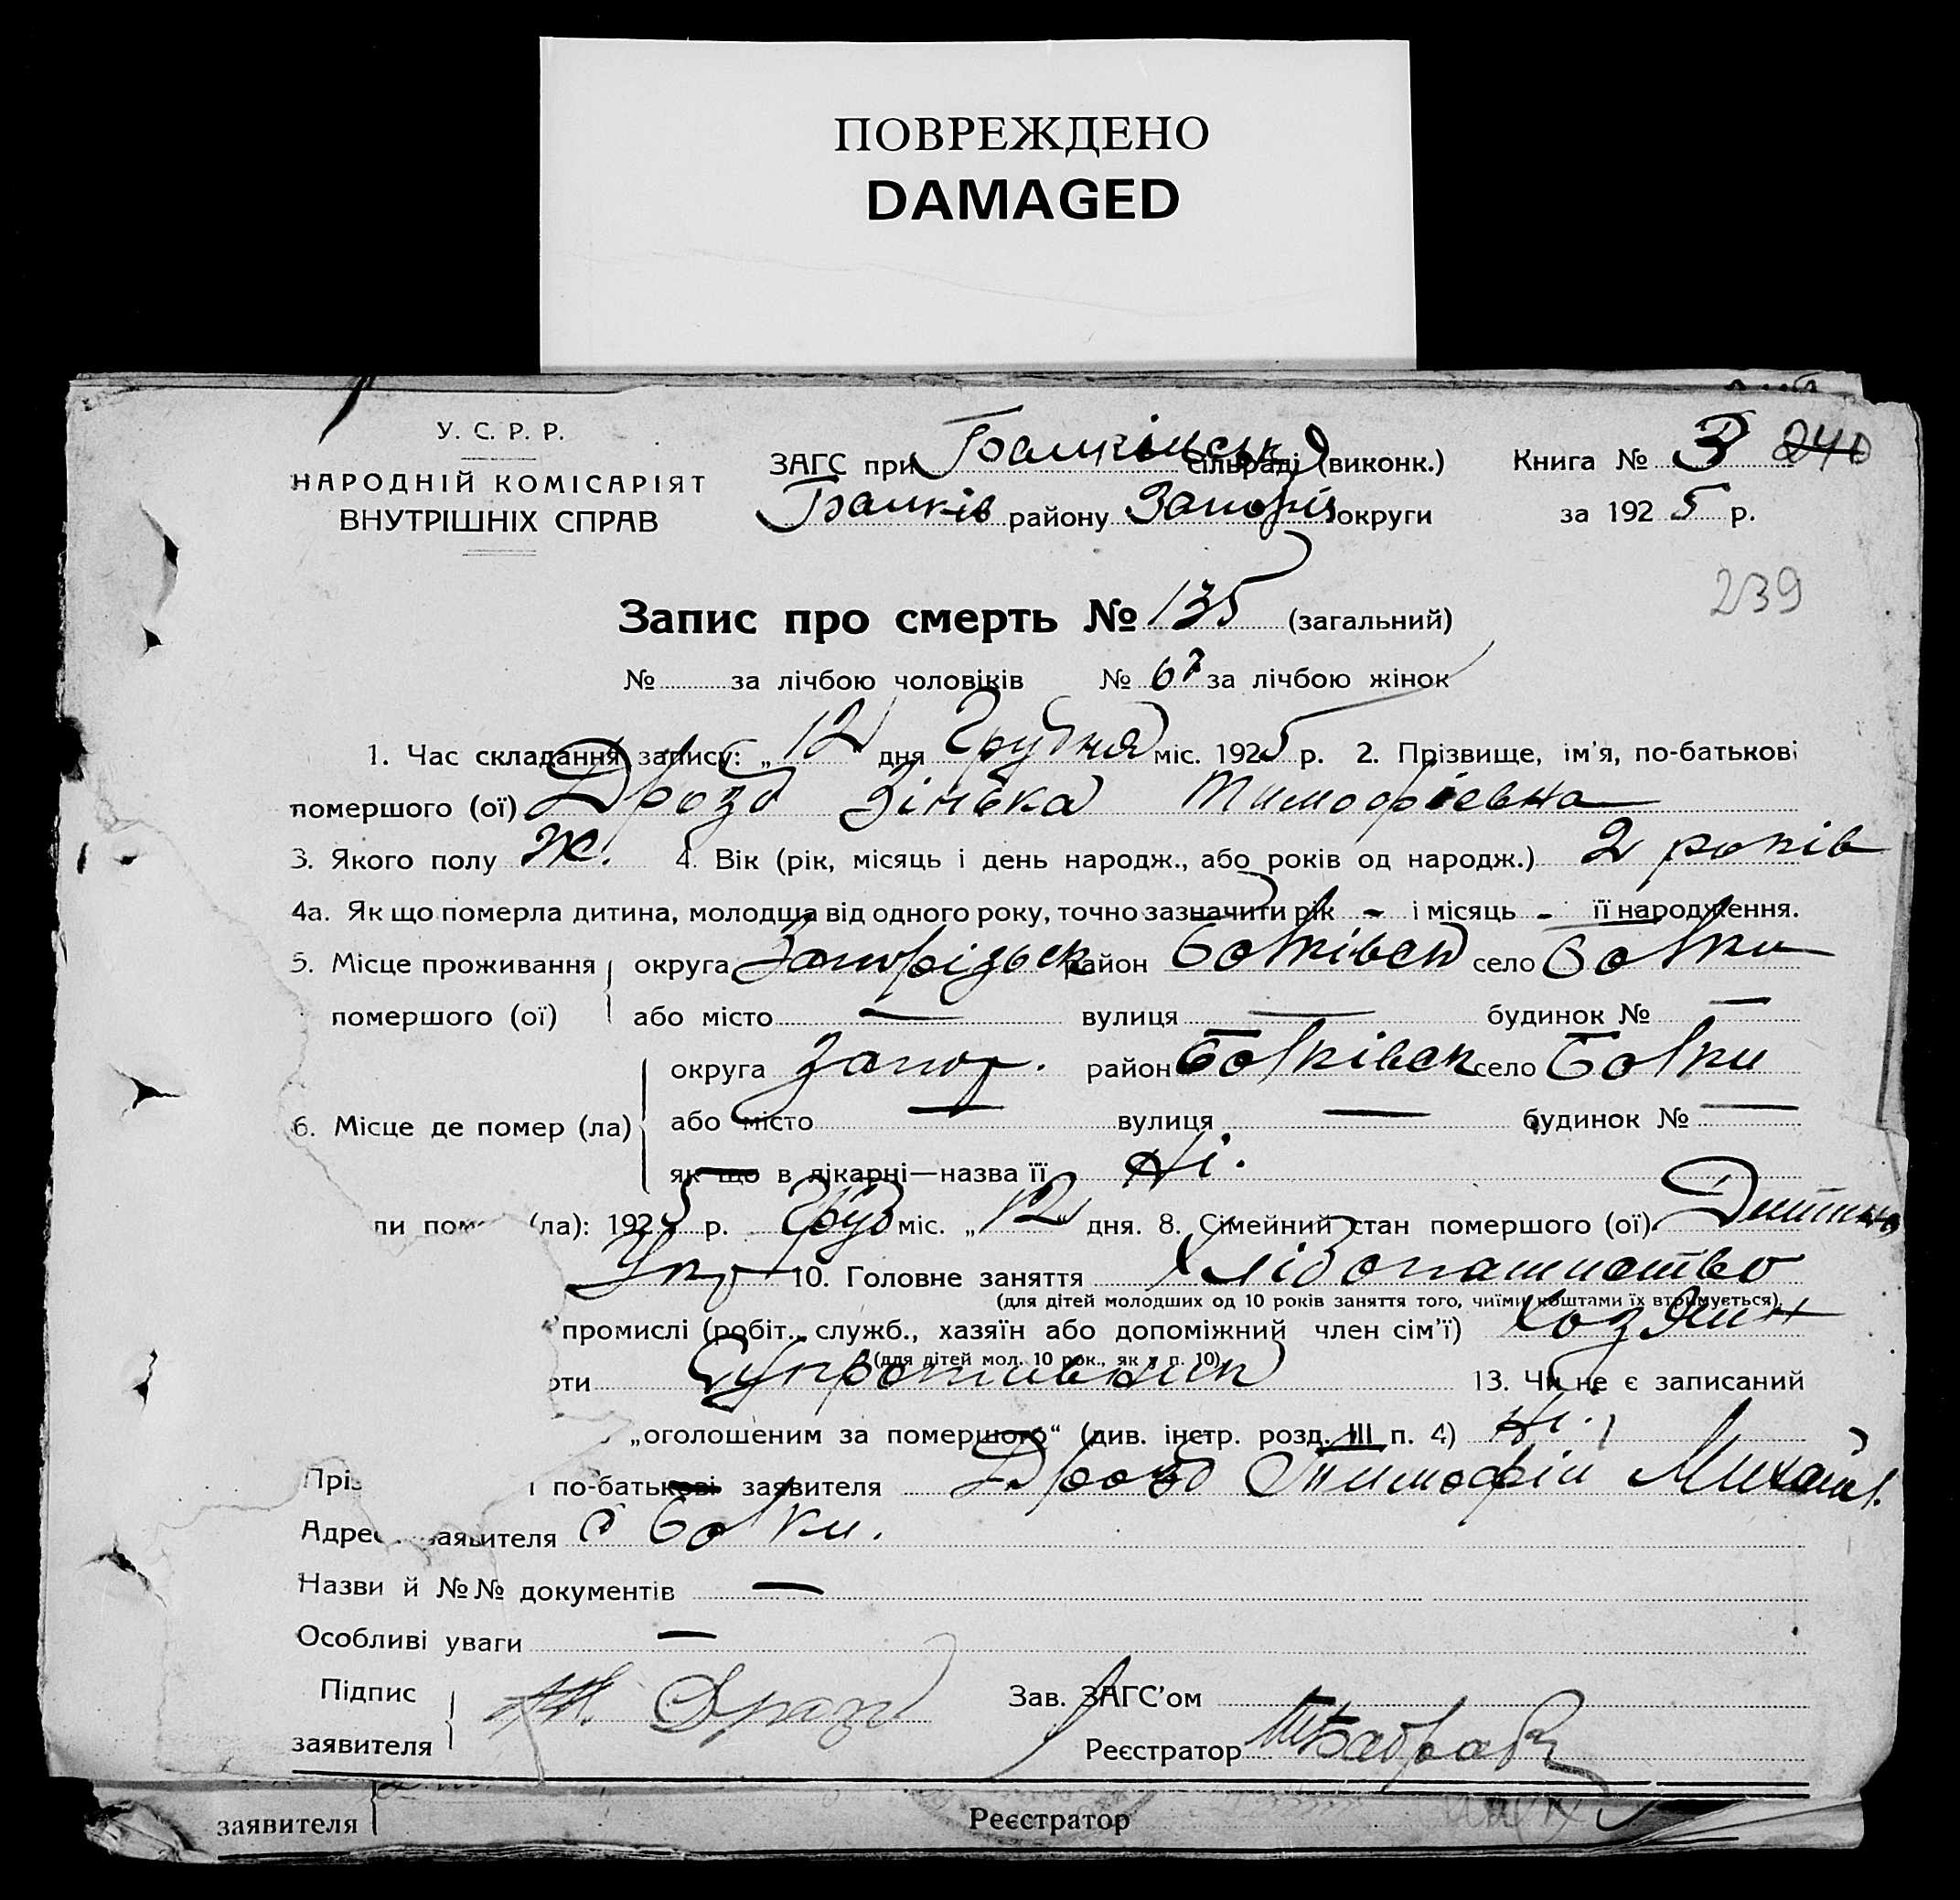 ПОВРЕЖДЕНО
DAMAGED
У. С. Р. Р.
НАРОДНІЙ КОМІСАРІЯТ
ВНУТРІШНІХ СПРАВ
ЗАГС при сільраді (виконк.)
Балків району Запоріз округи
Книга № 3 240
за 1925 р.
239
Запис про смерть № 135 (загальний)
№ за лічбою чоловіків № 67 за лічбою жінок
1. Час складання запису: „12" дня Грудня міс. 1925 р. 2. Прізвище, ім'я, по-батькові
помершого (ої) Дрозд Зінька Тимофіевна
3. Якого полу Ж. 4. Вік (рік, місяць і день народж., або років од народж.) 2 років
4а. Як що померла дитина, молодша від одного року, точно зазначити рік - і місяць - її народження.
5. Місце проживання округа Запорізьск район Балківск село Балки
помершого (ої) або місто — вулиця — будинок № —
округа Запор. район Балківск село Балки
6. Місце де помер (ла) або місто — вулиця — будинок № —
як що в лікарні—назва її Ні.
ли пом (ла): 1925 р. Груд міс. „12" дня. 8. Сімейний стан помершого (ої) Дитина
Укр 10. Головне заняття Хлібопашиство
(для дітей молодших од 10 років заняття того, чиїми коштами їх втримується)
промислі (робіт., служб., хазяїн або допоміжний член сім'ї) Хозяин
(для дітей мол. 10 рок., як у п. 10)
рти 13. Чи не є записаний
„оголошеним за помершого" (див. інстр. розд. III п. 4) Ні.
Пріз і по-батькові заявителя Дрозд Тимофій Михайл.
Адрес заявителя с Балки.
Назви й №№ документів —
Особливі уваги —
Підпис
заявителя Дрозд
Зав. ЗАГС'ом
Реєстратор
заявителя Реєстратор